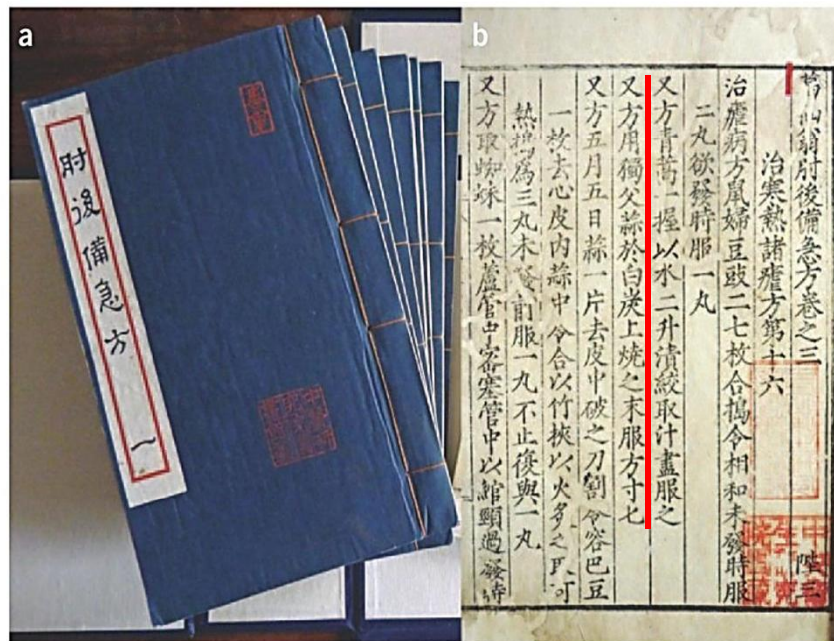 a
肘後備急方
一
b
葛仙翁肘後備急方卷之三
陞三
治寒熱諸瘧方第十六
治瘧病方鼠婦豆豉二七枚合搗令相和未發時服
二丸欲發時服一丸
又方青蒿一握以水二升漬絞取汁盡服之
又方用獨父蒜於白炭上燒之末服方寸七
又方五月五日蒜一片去皮中破之刀割令容巴豆
一枚去心皮内蒜中令合以竹挾以火炙之取可
熱搗爲三丸未發前服一丸不止復與一丸
又方取蜘蛛一枚蘆管中密塞管中以綰頸過發時